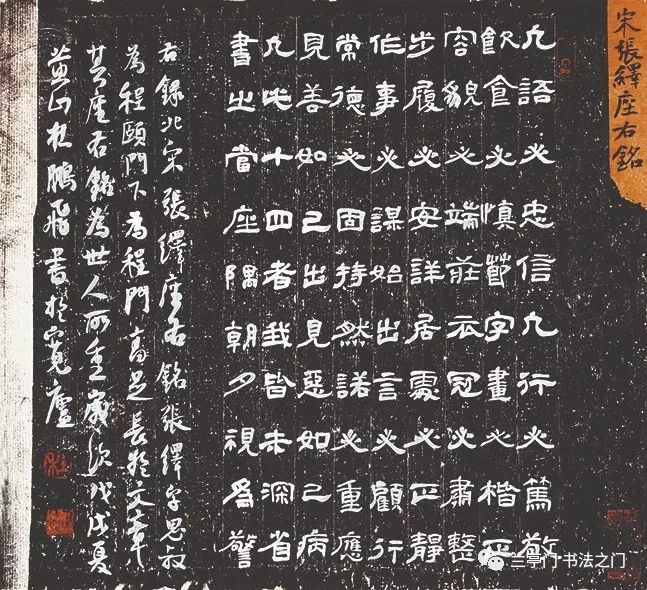 宋張繹座右銘
凡語必忠信凡行必篤敬
飲食必慎節字畫必楷正
容貌必端莊衣冠必肅整
步履必安詳居處必正靜
作事必謀始出言必顧行
常德必固持然諾必重應
見善如己出見惡如己病
凡此十四者我皆未深省
書之當座隅朝夕視為警
右錄北宋張繹座右銘張繹字思叔
為程頤門下為程門高足長於文章
其座右銘為世人所重歲次戊戌夏
黃山杜鵬飛書於寬廬
兰亭门书法之门